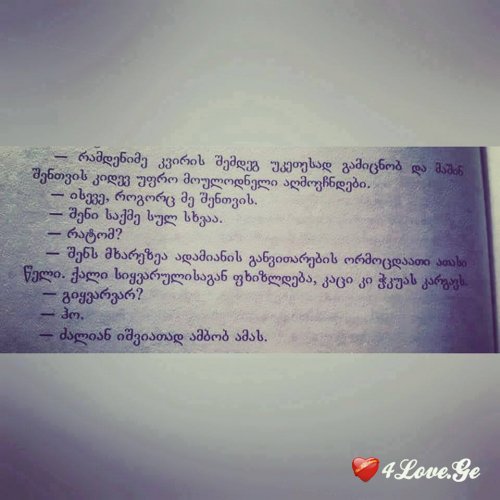 — რამდენიმე კვირის შემდეგ უკეთესად გამიცნობ და მაშინ
შენთვის კიდევ უფრო მოულოდნელი აღმოვჩნდები.
— ისევე, როგორც მე შენთვის.
— შენი საქმე სულ სხვაა.
— რატომ?
— შენს მხარეზეა ადამიანის განვითარების ორმოცდაათი ათასი
წელი. ქალი სიყვარულისაგან ფხიზლდება, კაცი კი ჭკუას კარგავს.
— გიყვარვარ?
— ჰო.
— ძალიან იშვიათად ამბობ ამას.
4Love.Ge